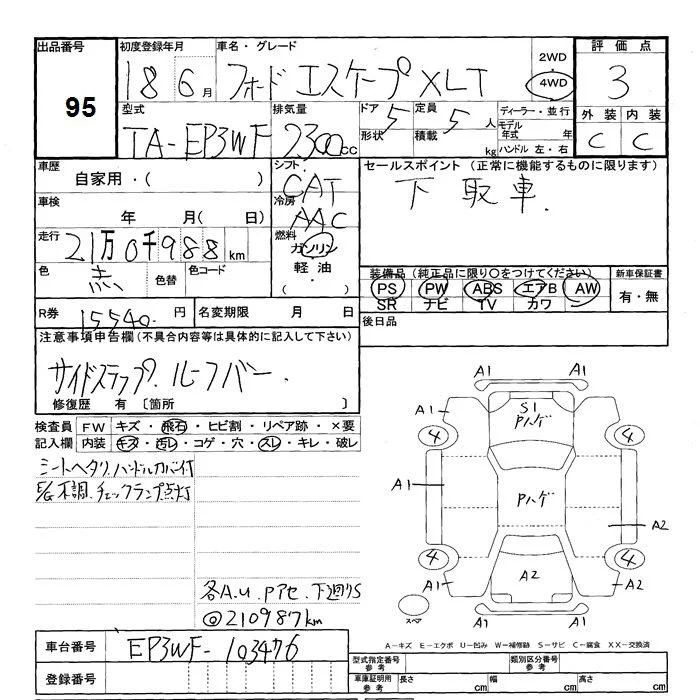 出品番号 初度登録年月 車名・グレード 評価点
95 18 6月 フォード エスケープXLT 2WD 4WD 3
型式 排気量 ドア 5 定員 5人 ディーラー・並行 外装 内装
TA-EP3WF 2300cc 形状 積載 kg モデル年式 年 ハンドル 左・右 C C
車歴 シフト セールスポイント (正常に機能するものに限ります)
自家用・( ) CAT 下取車.
車検 年 月( 日) 冷房 AAC
走行 21万0千988km 燃料 ガソリン
色 赤 色替 色コード 軽油 ・( ) 装備品 (純正品に限り○をつけてください) 新車保証書
PS PW ABS エアB AW 有・無
SR ナビ TV カワ
R券 15540- 円 名変期限 月 日 後日品
注意事項申告欄 (不具合内容等は具体的に記入して下さい)
サイドステップ. ルーフバー.
修復歴 有 〔箇所 〕
検査員 FW キズ・飛石・ヒビ割・リペア跡・×要
記入欄 内装 キズ・汚レ・コゲ・穴・スレ・キレ・破レ
シートヘタリ.ハンドルカバー付
不調.チェックランプ点灯
各A.U.Pアセ.下廻りS
◎210987km
A1 A1
A1 S1 Pハゲ A1
4 4
A1 Pハゲ A2
4 4
A1 A2 A1
スペア A1 A1
A-キズ E-エクボ U-凹み W-補修跡 S-サビ C-腐食 XX-交換済
車台番号 EP3WF-103476
型式指定番号 参考 類別区分番号 参考
登録番号 車庫証明用 参考 長さ cm 幅 cm 高さ cm